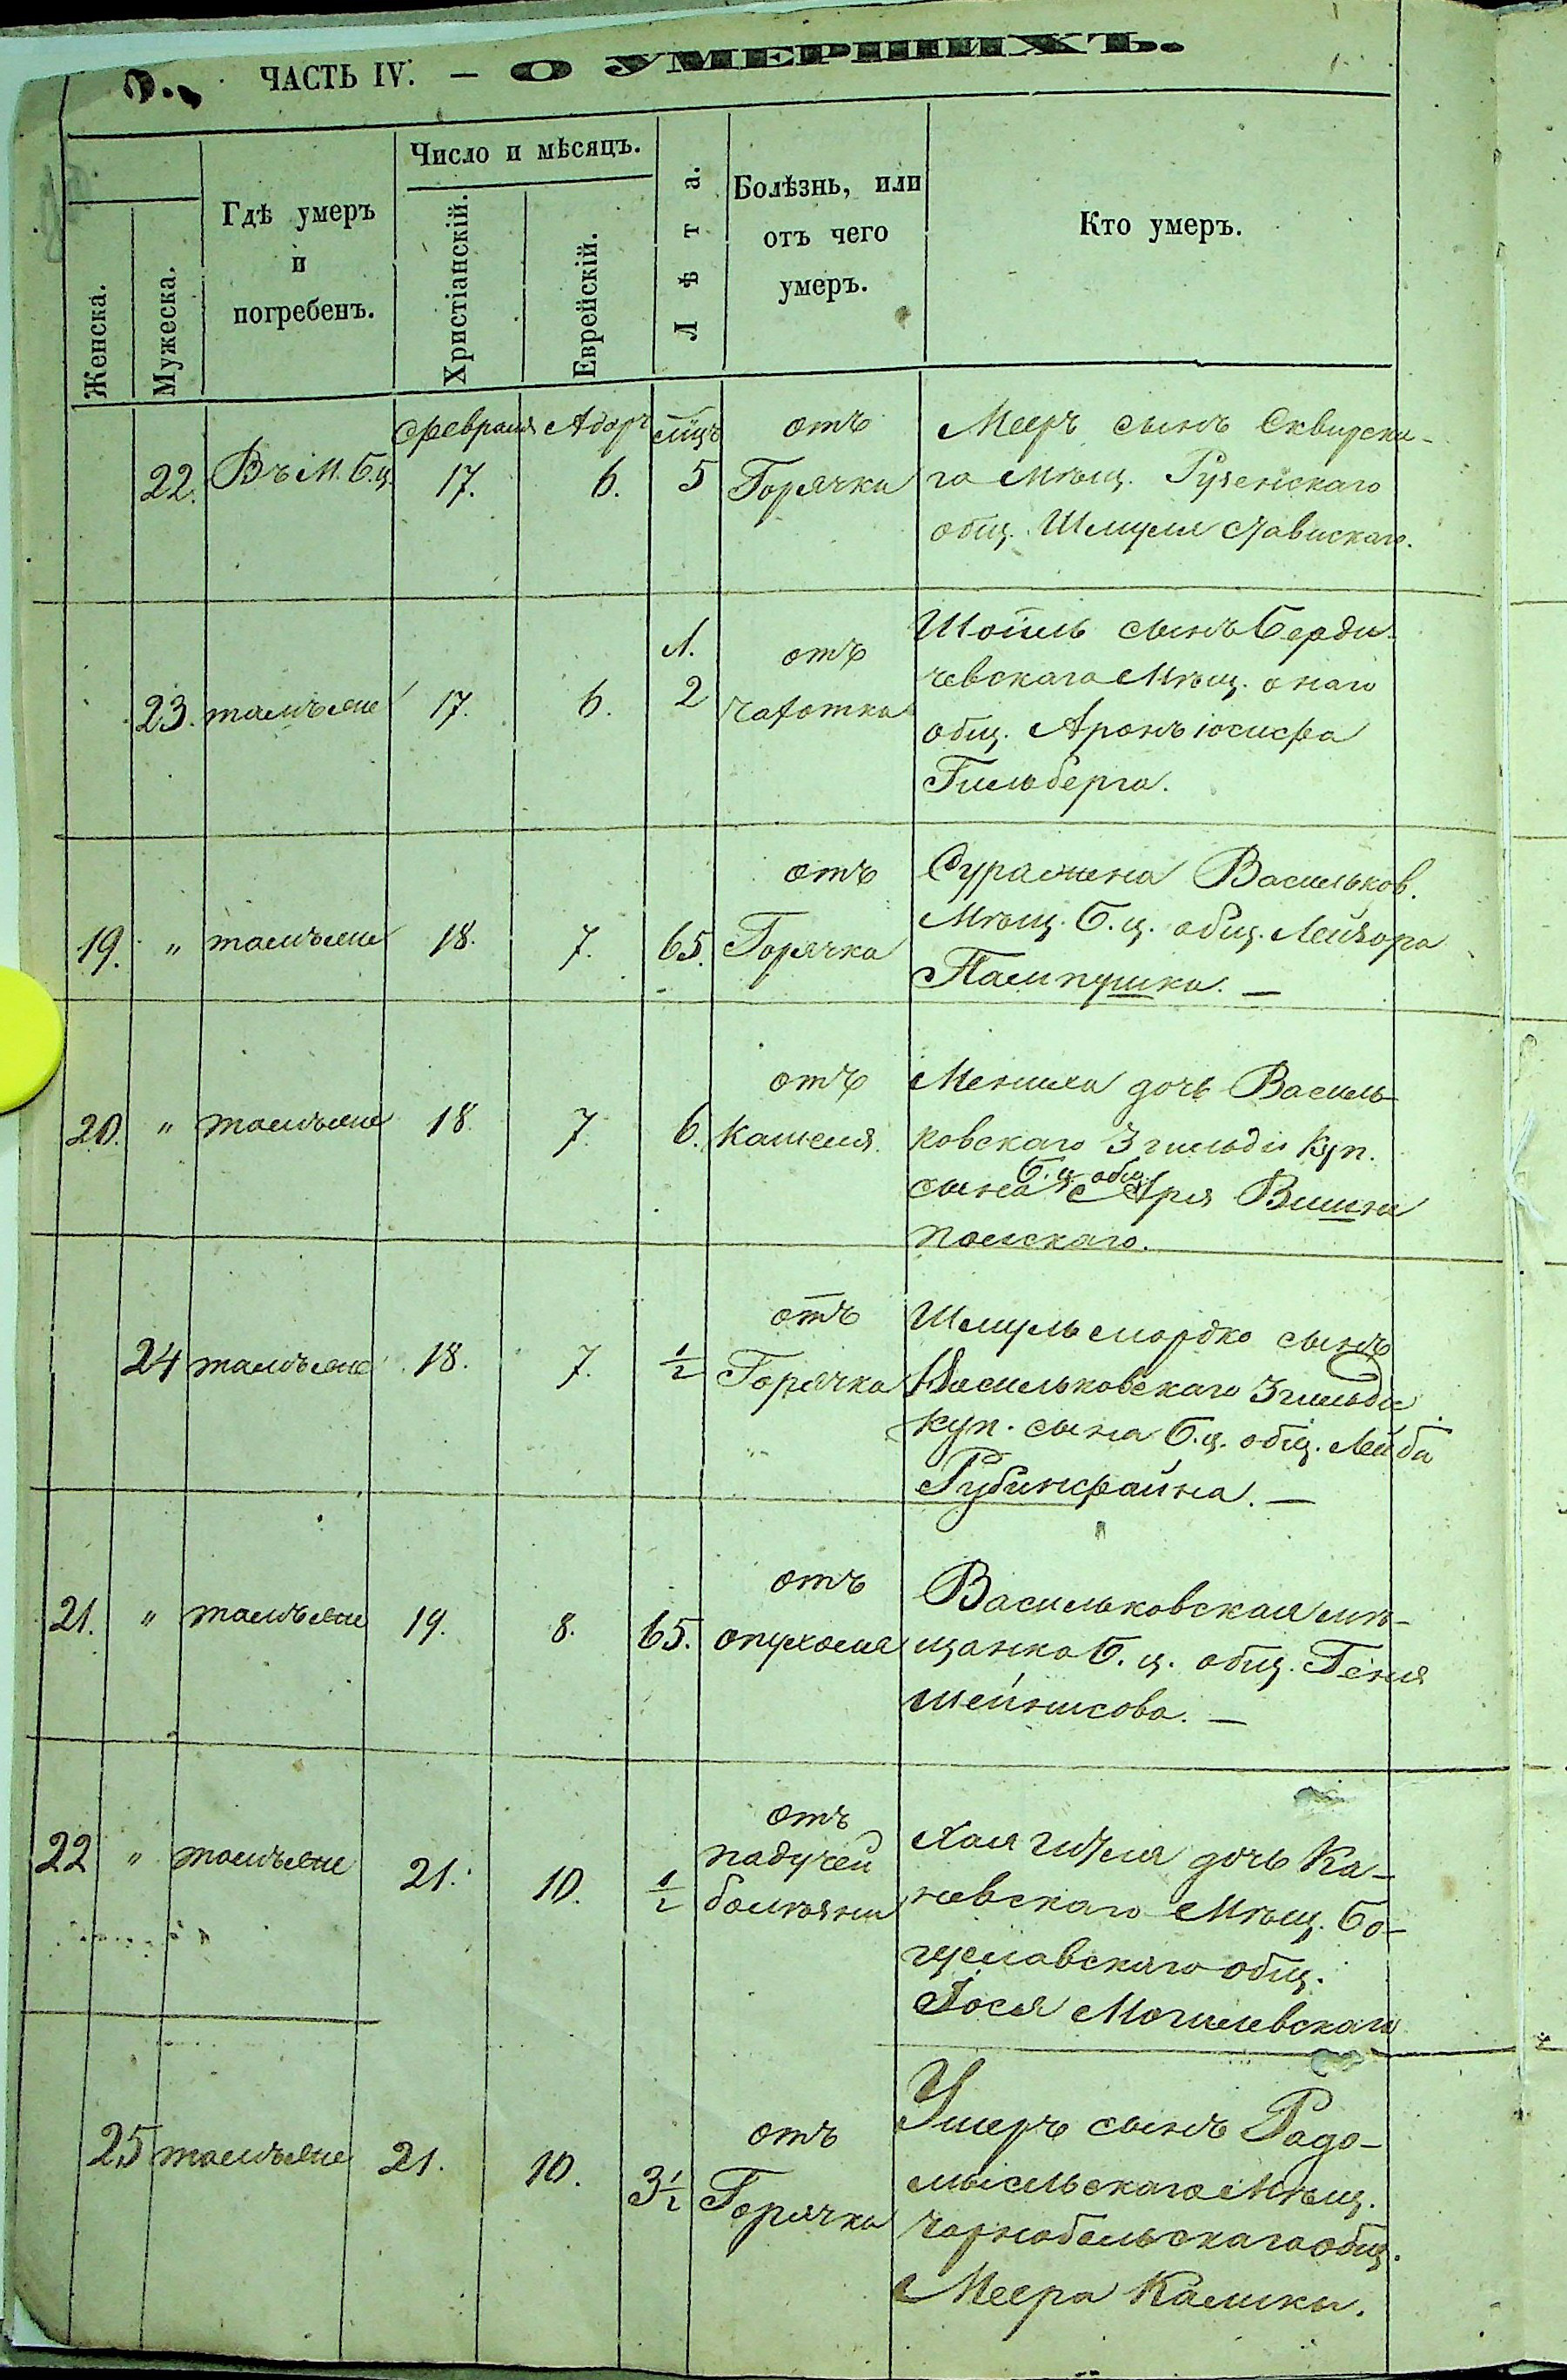 ЧАСТЬ IV. — О УМЕРШИХЪ.
Женска.
Мужеска.
Гдѣ умеръ
и
погребенъ.
Число и мѣсяцъ.
Христіанскій.
Еврейскій.
Лѣта.
Болѣзнь, или
отъ чего
умеръ.
Кто умеръ.
Февраля Адаръ
22. Въ М. Б.ц. 17. 6. 5
отъ
Горячки
Мееръ сынъ Сквирска-
го Мѣщ. Руженскаго
общ. Шмуля
23. тамъ же 17. 6. Л.
2
отъ
чахотки
Шоиль сынъ Берди-
чевскаго Мѣщ. онаго
общ. Аронъ іосифа
Гильберга.
19. " тамъ же 18. 7. 65.
отъ
Горячка
Сура жена Васильков.
Мѣщ. Б.ц. общ. Лейзора
Пампушки. —
20. " тамъ же 18 7. 6.
отъ
кашеля.
Мениха дочь Василь-
ковскаго 3 гильдіи Куп.
сына Б.ц. общ. Аря Вишни
польскаго.
24 тамъ же 18. 7. 1/2
отъ
Горячка
Шмуль мордко сынъ
Васильковскаго 3 гильди
куп. сына Б.ц. общ. Лейба
Рубинфайна. —
21. " тамъ же 19. 8. 65.
отъ
опухоля
Васильковская мѣ-
щанка Б. ц. общ. Геня
шейнисова. —
22 " тамъ же 21. 10. 1/2
отъ
падучей
болѣзни
Хая дочь Ка-
невскаго Мѣщ. Бо-
гуславскаго общ.
Іося Могилевскаго
25 тамъ же 21. 10. 3 1/2
отъ
Горячка
Умеръ сынъ Радо-
мысльскаго Мѣщ.
чарнобельскаго общ.
Меера Калики.